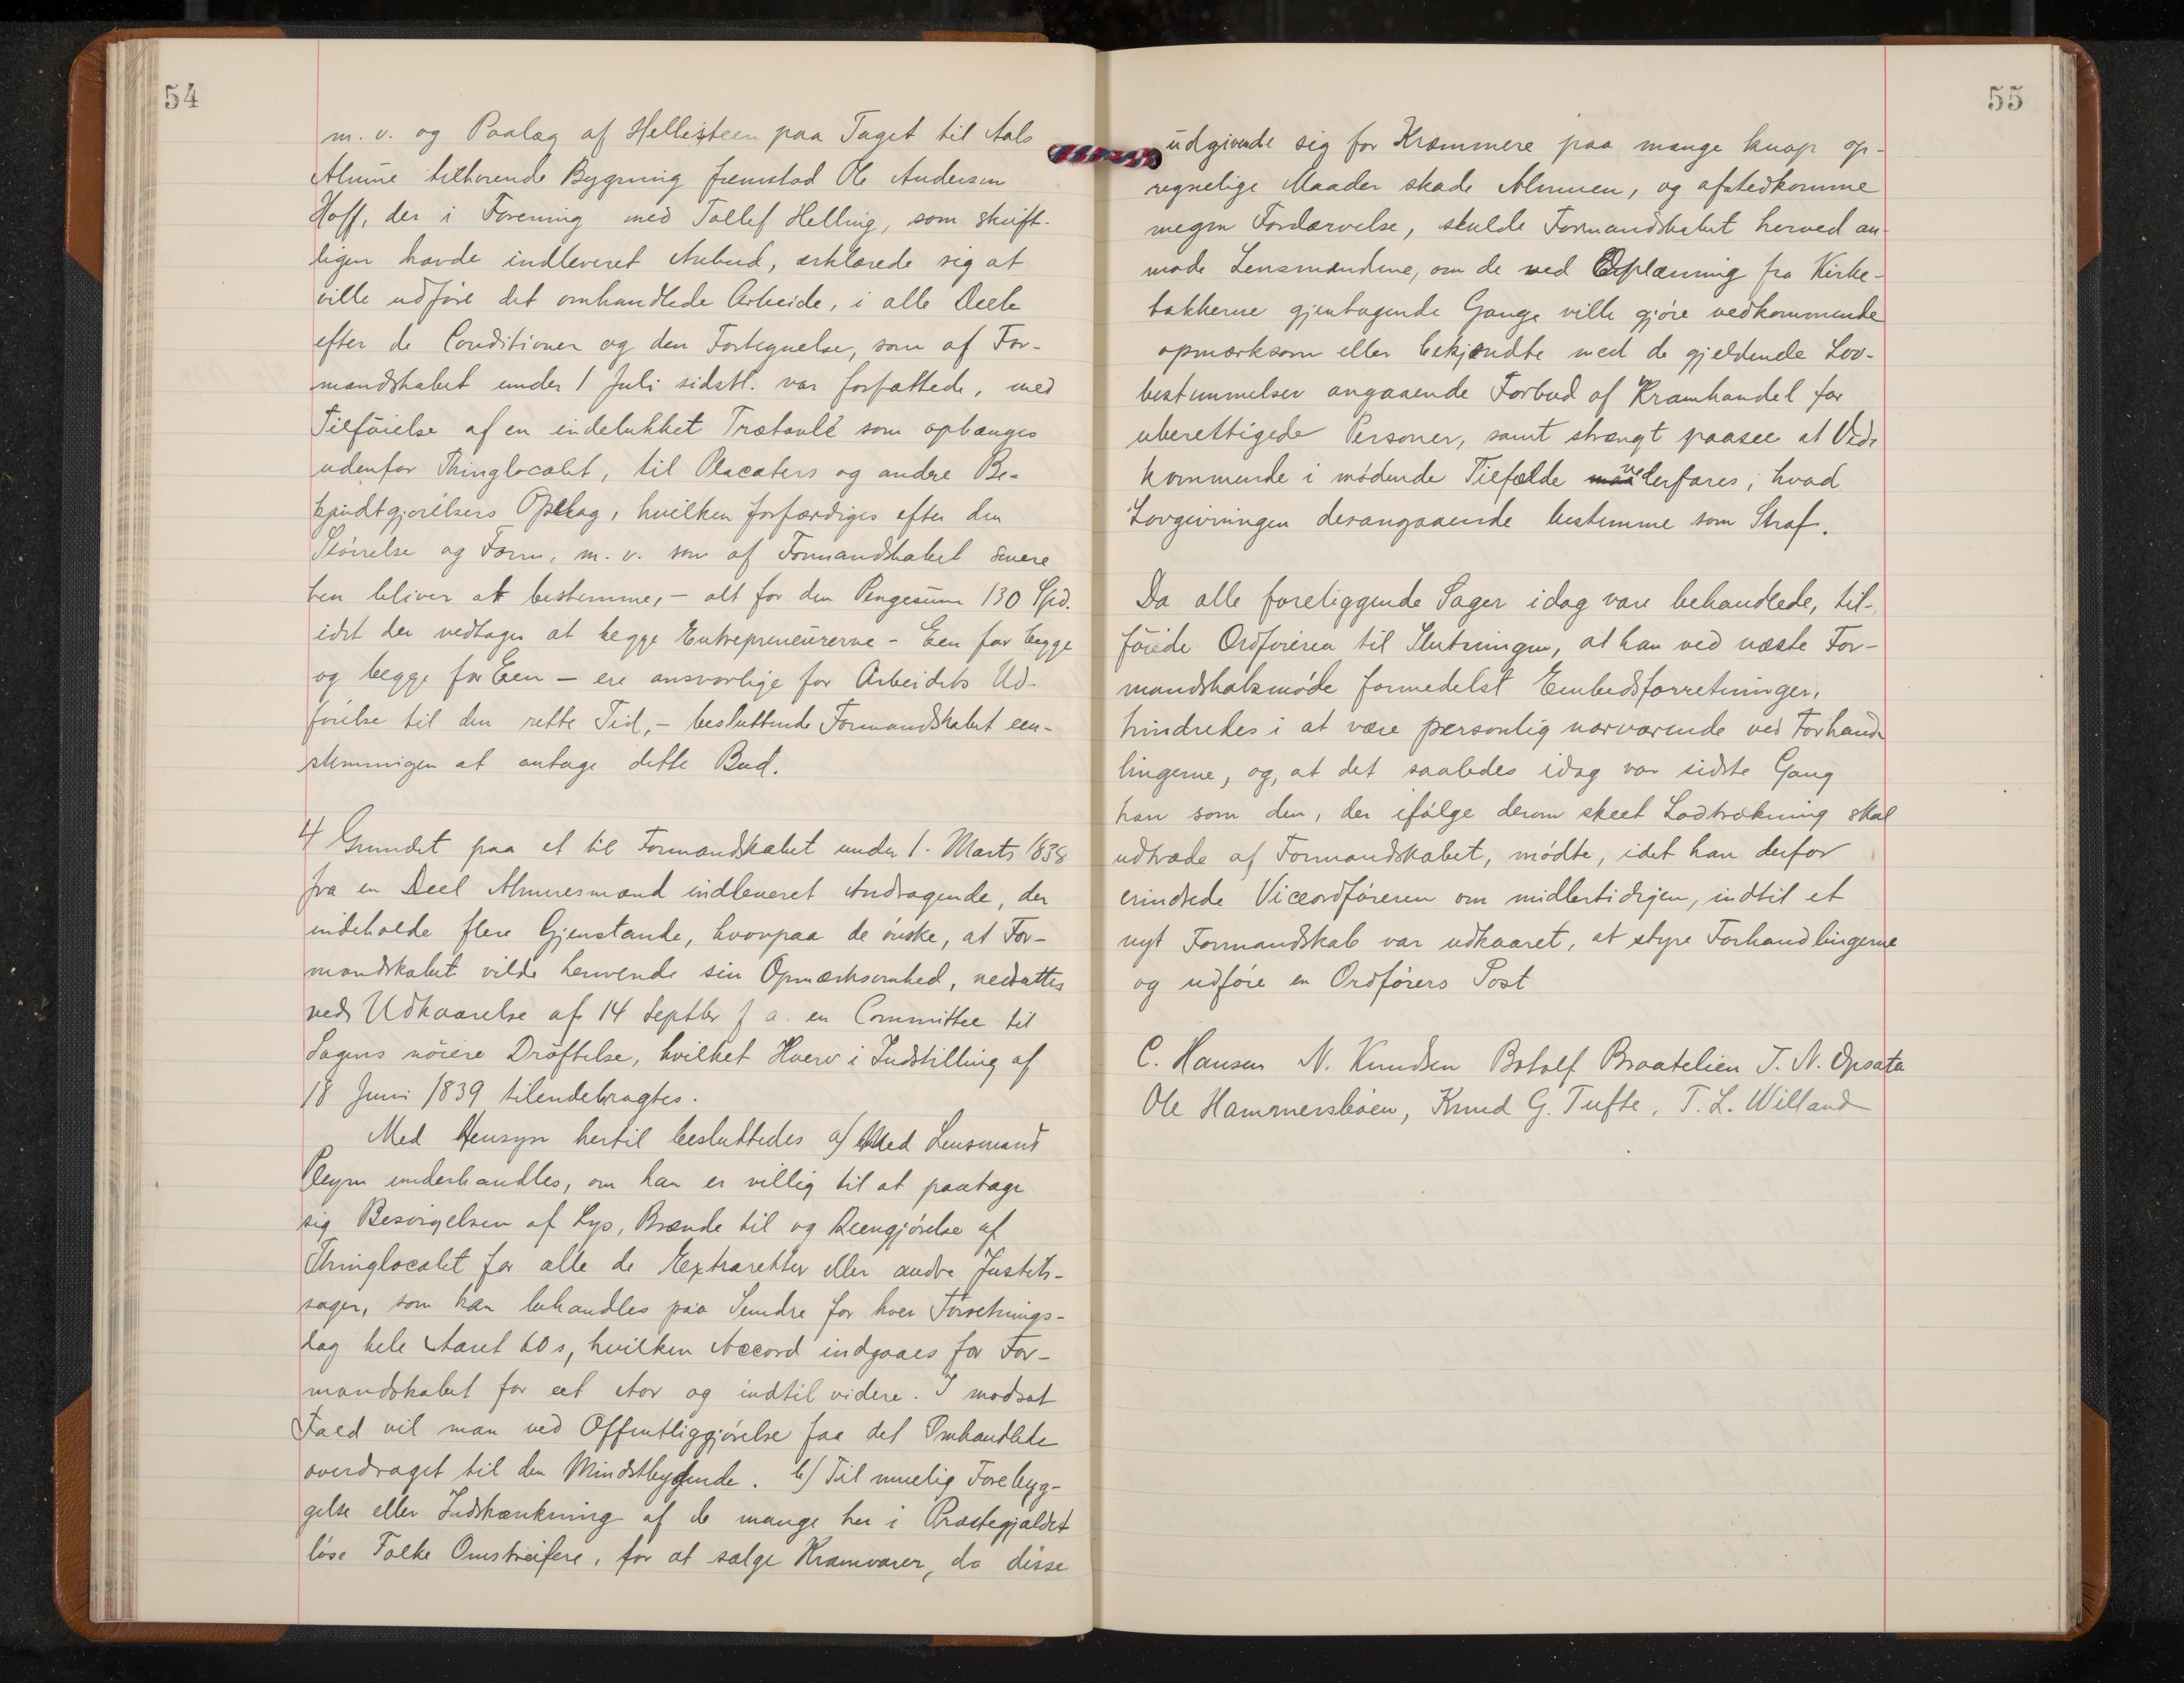 54
m. v. og Paalæg af Hellisteen paa Taget til Aals
Almue tilhørende Bygning fremstod Ole Andersen
Hoff, der i Forening med Tollef Helling, som skrift-
ligen havde indleveret Anbud, erklærede sig at
ville udføre det omhandlede Arbeide, i alle Deele
efter de Conditioner og den Fortegnelse, som af For-
mandskabet under 1 Juli sidstl. var forfattede, med
Tilføielse af en indelukket Trætavle som ophænges
udenfor Thinglocalet, til Placaters og andre Be-
kjendtgjørelsers Opslag, hvilken forfærdiges efter den
Størrelse og Form, m. v. som af Formandskabet senere
hen bliver at bestemme, - alt for den Pengesum 130 Spd.
idet der vedtages at begge Entrepreneurerne - Een for begge
og begge for Een - ere ansvarlige for Arbeidets Ud-
førelse til den rette Tid, - besluttende Formandskabet een-
stemmigen at antage dette Bud.
4 Grundet paa et til Formandskabet under 1. Marts 1838
fra en Deel Almuesmænd indleveret Andragende, der
indeholde flere Gjenstande, hvorpaa de ønske, at For-
mandskabet vilde henvende sin Opmærksomhed, nedsattes
ved Udkaarelse af 14 Septbr f a. en Committee til
Sagens nøiere Drøftelse, hvilket Hverv i Indstilling af
18 Juni 1839 tilendebragtes.
Med Hensyn hertil besluttedes a) Med Lensmand
Pleym underhandles, om han er villig til at paatage
sig Besørgelsen af Lys, Brænde til og Reengjørelse af
Thinglocalet for alle de Extraretter eller andre Justits-
sager, som kan behandles paa Sundre for hver Forretnings-
dag hele Aaret 60 s, hvilken Accord indgaaes for For-
mandskabet for eet Aar og indtil videre. I modsat
Fald vil man ved Offentliggjørelse faa det Omhandlede
overdraget til den Mindstbydende. b) Til muelig Forebyg-
gelse eller Indskrænkning af de mange her i Præstegjældet
løse Folks Omstreifere, for at sælge Kramvarer, da disse
55
udgivende sig for Kræmmere paa mange knap op-
regnelige Maader skade Almuen, og afstedkomme
megen Fordærvelse, skulde Formandskabet herved an-
mode Lensmændene, om de ved Oplæsning fra Kirke-
bakkerne gjentagende Gange ville gjøre vedkommende
opmærksom eller bekjendte med de gjeldende Lov-
bestemmelser angaaende Forbud af Kramhandel for
uberettigede Personer, samt strængt paasee at Ved-
kommende i mødende Tilfælde vederfares, hvad
Lovgivningen desangaaende bestemme som Straf.
Da alle foreliggende Sager idag vare behandlede, til-
føiede Ordføreren til Slutningen, at han ved næste For-
mandskabsmøde formedelst Embedsforretninger,
hindredes i at være personlig nærværende ved Forhand-
lingerne, og, at det saaledes idag var sidste Gang
han som den, der ifølge derom skeet Lodtrækning skal
udtræde af Formandskabet, mødte, idet han derfor
erindrede Viceordføreren om midlertidigen, indtil et
nyt Formandskab var udkaaret, at styre Forhandlingerne
og udføre en Ordførers Post
C. Hansen N. Knudsen Botolf Braatelien T. N. Opsata
Ole Hammersbøen, Knud G. Tufte, T. L. Willand